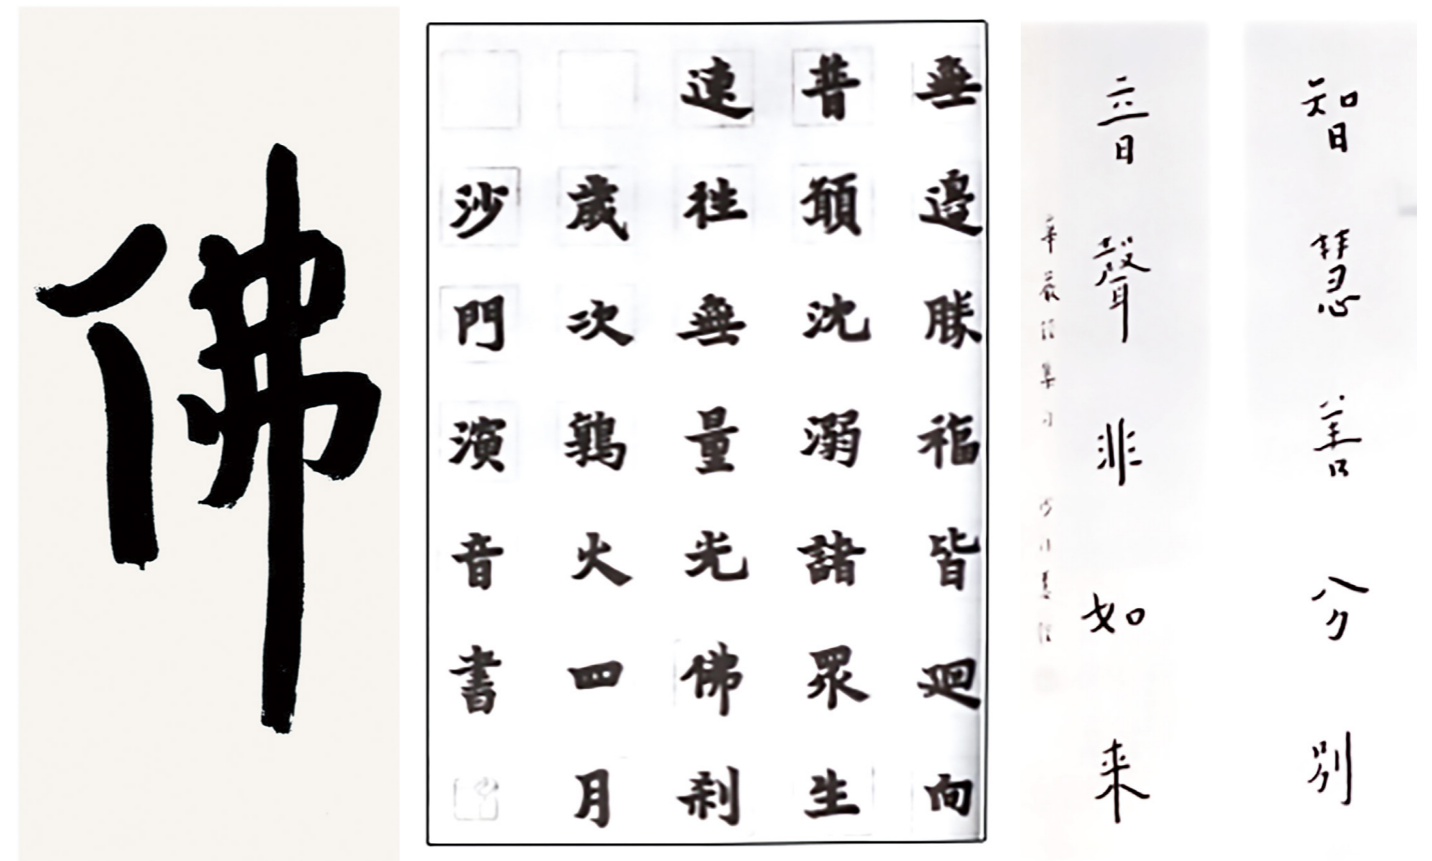 佛
無邊勝福皆迴向
普願沈溺諸眾生
速往無量光佛剎
歲次鶉火四月
沙門演音書
智慧善分別
音聲非如來
華嚴經集句